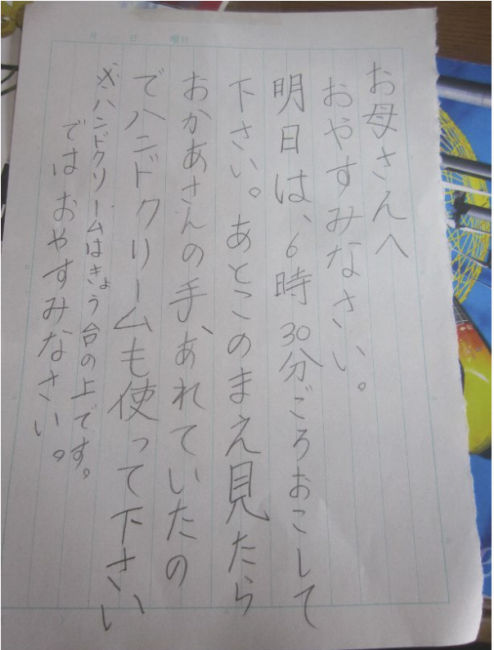 月 日 曜日
お母さんへ
おやすみなさい。
明日は、6時30分ごろおこして
下さい。あとこのまえ見たら
おかあさんの手、あれていたの
でハンドクリームも使って下さい
※ハンドクリームはきょう台の上です。
ではおやすみなさい。